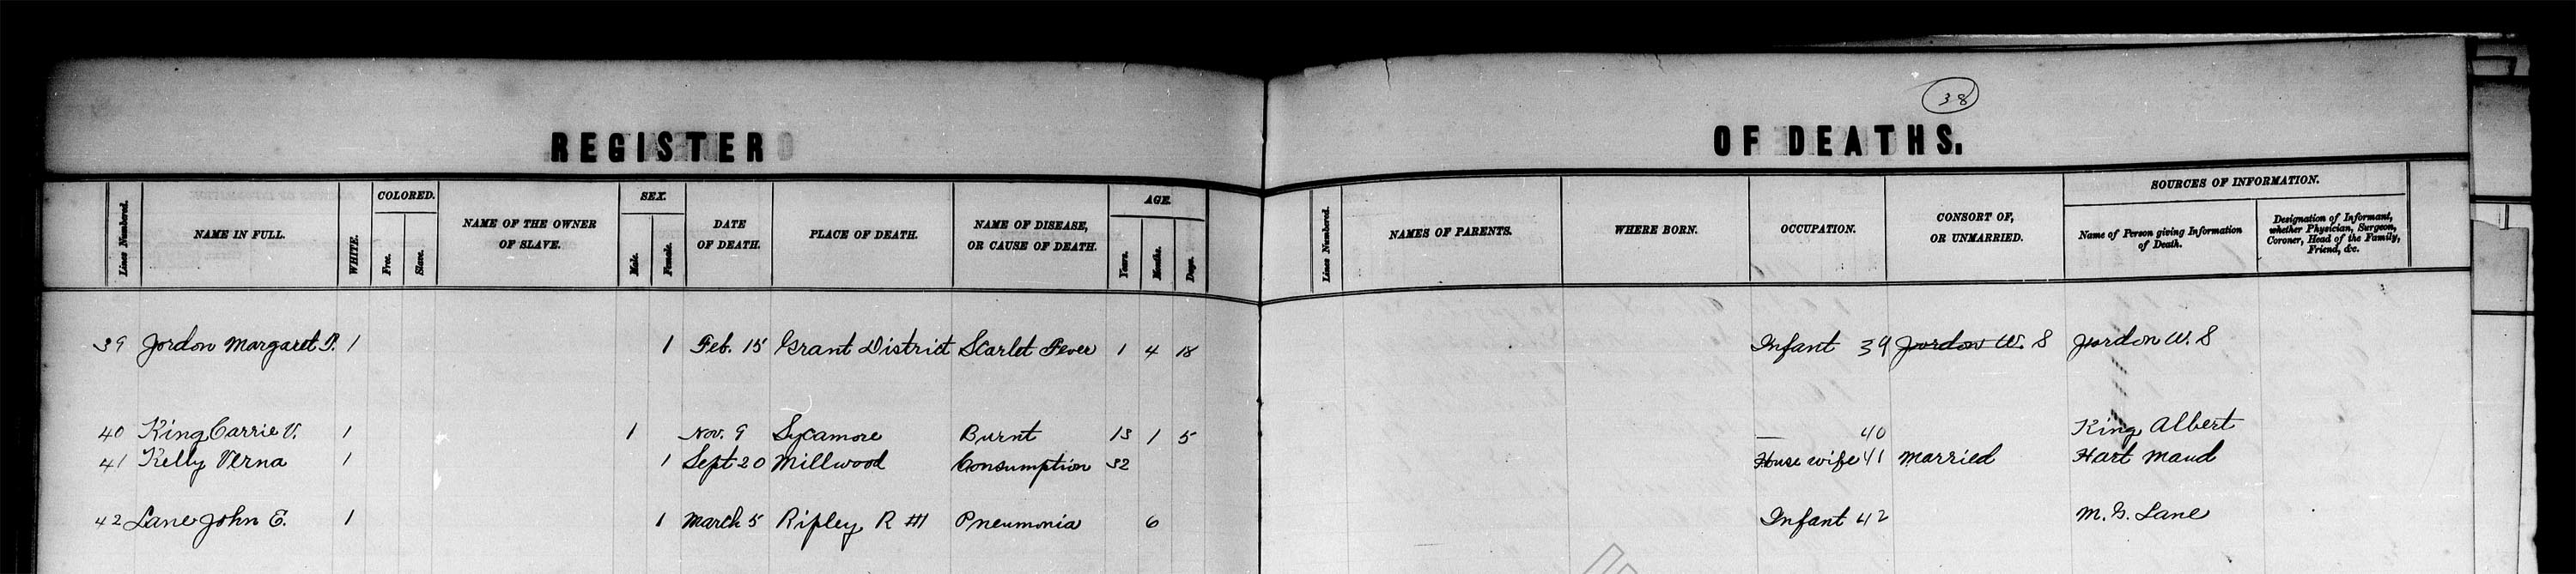 38
REGISTER OF DEATHS.
Lines Numbered. NAME IN FULL. WHITE. COLORED. Free. Slave. NAME OF THE OWNER OF SLAVE. SEX. Male. Female. DATE OF DEATH. PLACE OF DEATH. NAME OF DISEASE, OR CAUSE OF DEATH. AGE. Years. Months. Days. Lines Numbered. NAMES OF PARENTS. WHERE BORN. OCCUPATION. CONSORT OF, OR UNMARRIED. SOURCES OF INFORMATION. Name of Person giving Information of Death. Designation of Informant, whether Physician, Surgeon, Coroner, Head of the Family, Friend, &c.
39 Jordon Margaret P. 1 1 Feb. 15 Grant District Scarlet Fever 1 4 18 Infant 39 Jordon W. S Jordon W. S
40 King Carrie V. 1 1 Nov. 9 Sycamore Burnt 13 1 5 — 40 King Albert
41 Kelly Verna 1 1 Sept 20 Millwood Consumption 32 House wife 41 Married Hart Maud
42 Lane John E. 1 1 March 5 Ripley R #1 Pneumonia 6 Infant 42 M. G. Lane